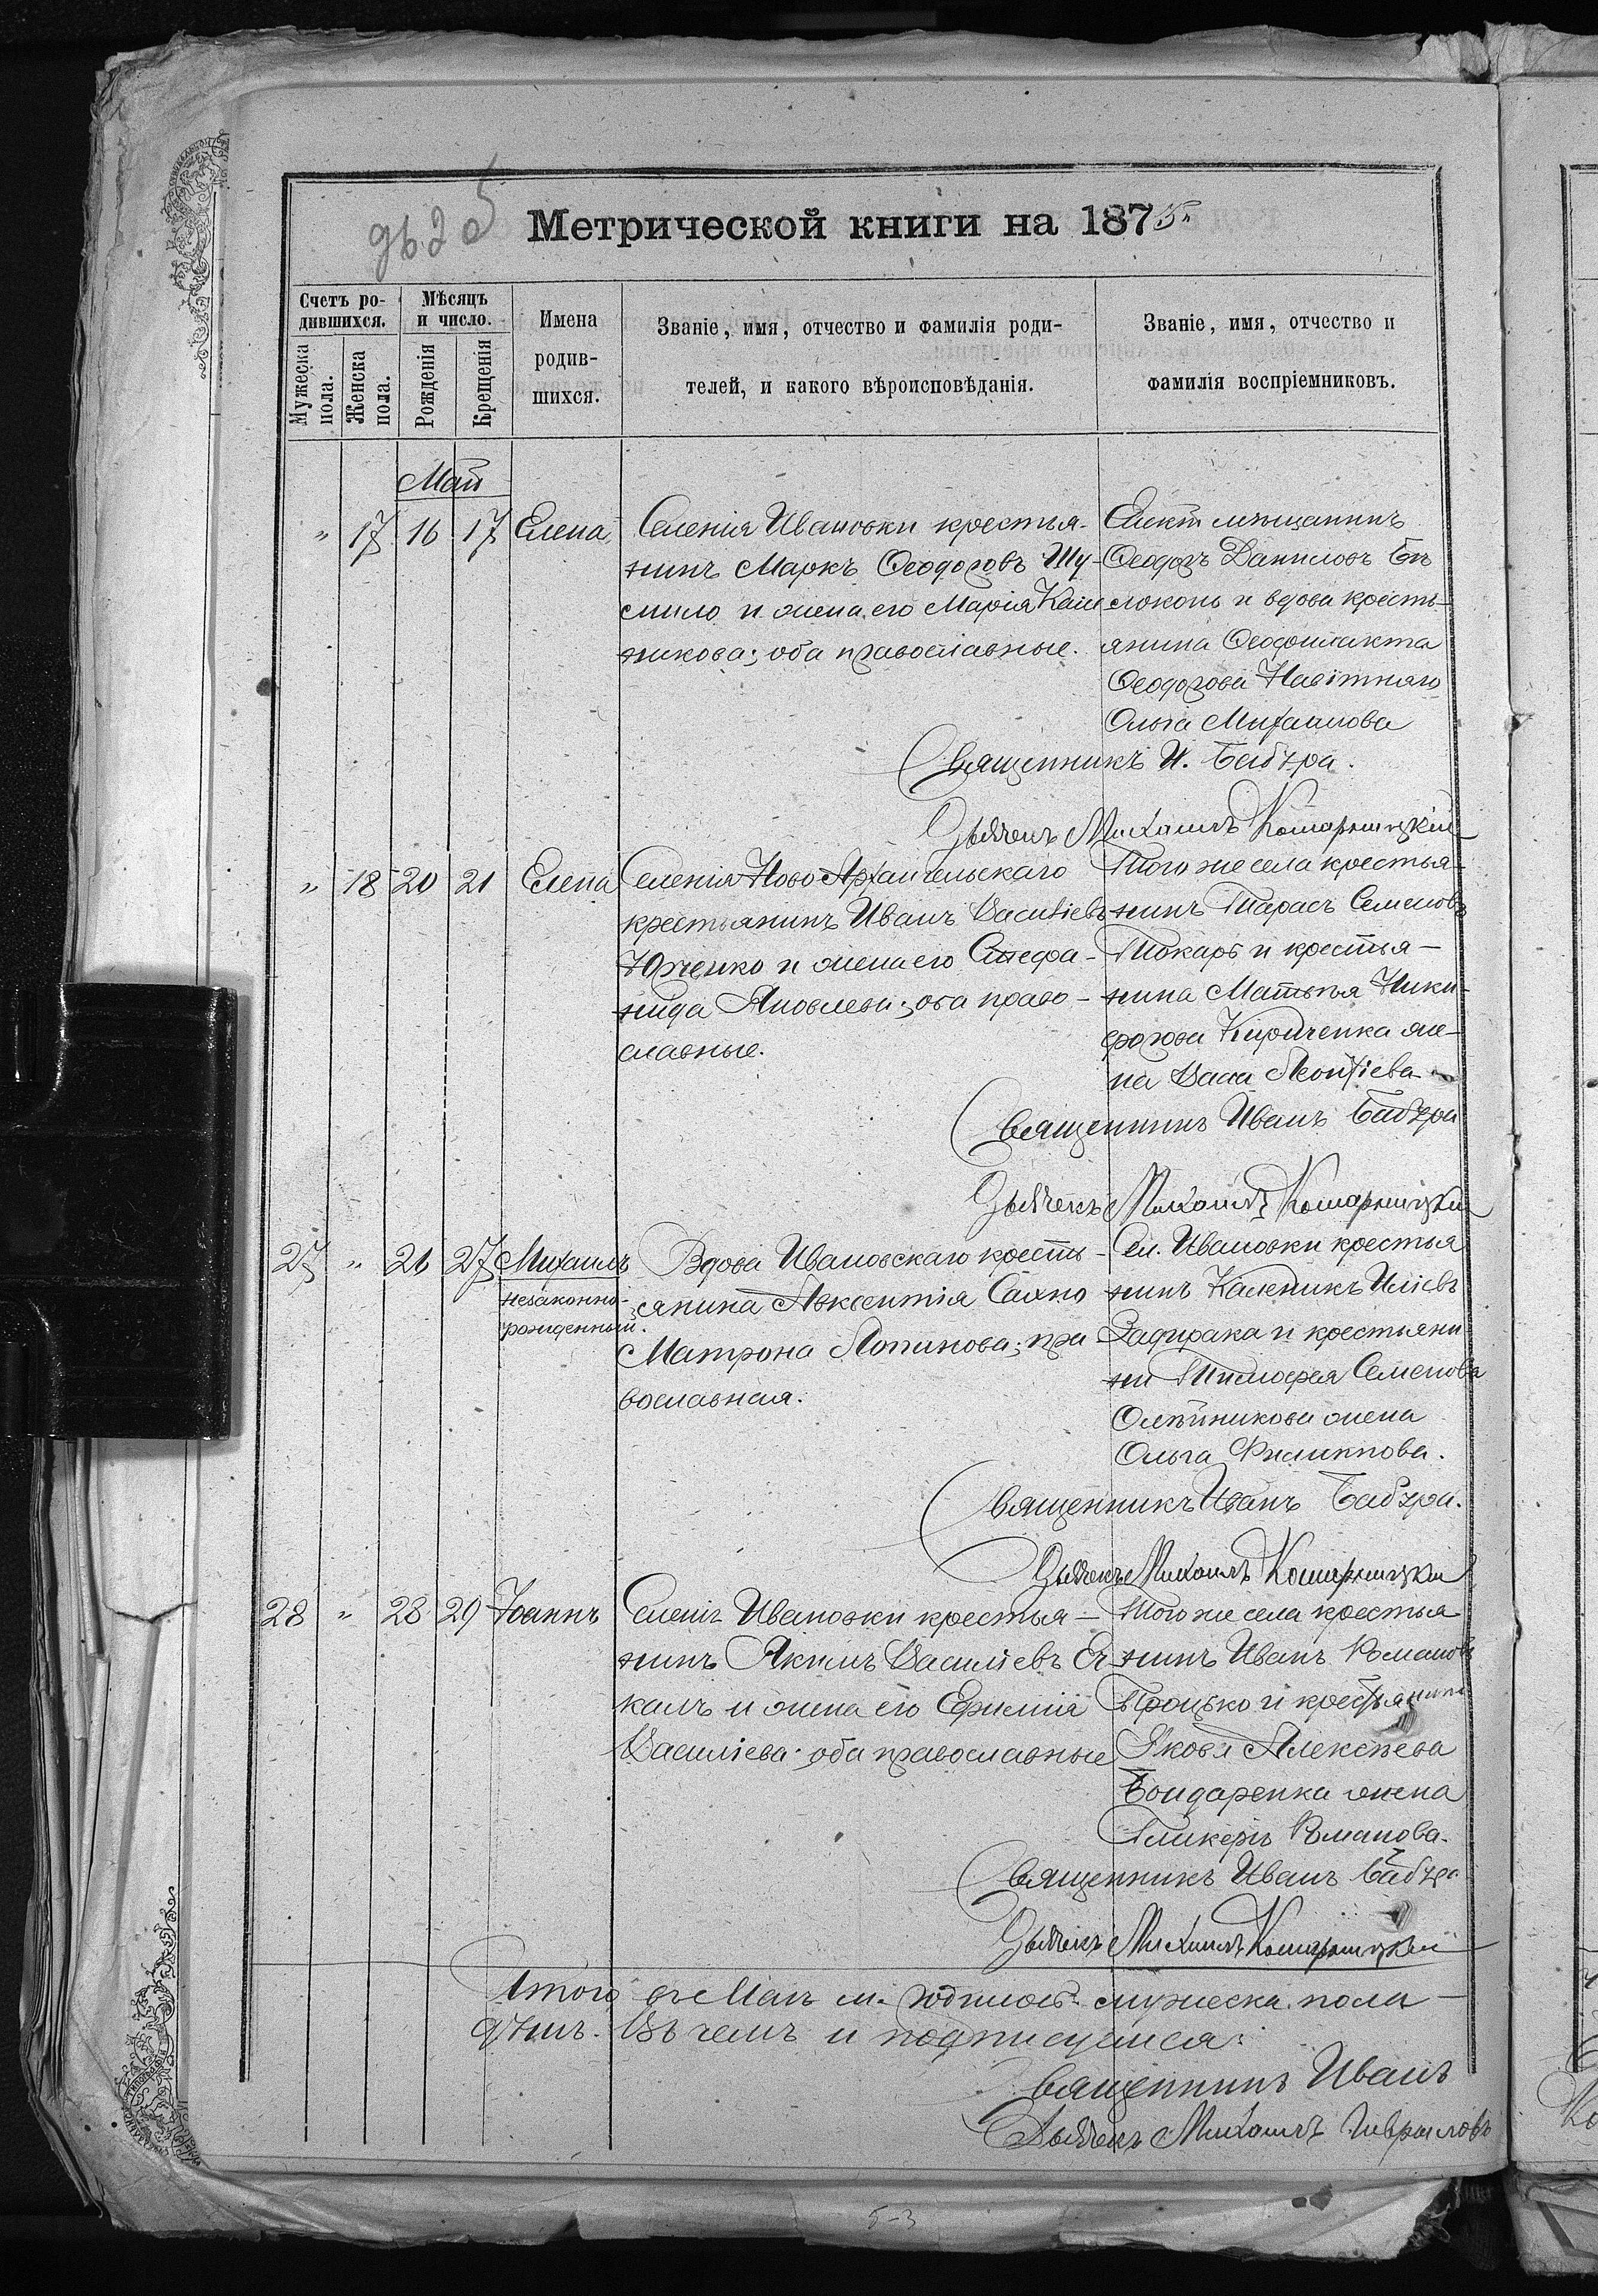 Метрической книги на 1875
Счетъ ро-
дившихся.
Мѣсяцъ
и число.
Мужеска
пола.
Женска
пола.
Рожденія
Крещенія
Имена
родив-
шихся.
Званіе, имя, отчество и фамилія роди-
телей, и какого вѣроисповѣданія.
Званіе, имя, отчество и
фамилія воспріемниковъ.
Май
" 17 16 17 Елена
Селенія Ивановки крестья-
нинъ Маркъ Ѳеодоровъ Шу-
мило и жена его Марія
никова; оба православные.
мѣщанинъ
Ѳеодоръ Даниловъ Бѣ-
локонь и вдова кресть-
янина Ѳеофилакта
Ѳеодорова
Ольга Михаилова
Священникъ И.
Дьячекъ Михаилъ
" 18 20 21 Елена
Селенія Ново Архангельскаго
крестьянинъ Иванъ Василіевъ
Юрченко и жена его Стефа-
нида Яковлева; оба право-
славные.
Того же села крестья-
нинъ Тарасъ Семеновъ
Токарь и крестья-
нина Матѳея Ники-
форова Кириченка же-
на Васса Леонтіева
Священникъ Иванъ
Дьячекъ Михаилъ
27 " 26 27 Михаилъ
незаконно-
рожденный.
Вдова Ивановскаго кресть-
янина Авксентія Сахно
Матрона Логинова; пра-
вославная.
Сел. Ивановки крестья
нинъ Каленикъ Иліевъ
Задирака и крестьяни
на Тимоѳея Семенова
Олѣйникова жена
Ольга Филиппова.
Священникъ Иванъ
Дьячекъ Михаилъ
28 " 28 29 Іоаннъ
Селенія Ивановки крестья-
нинъ Якимъ Василіевъ
и жена его Ефимія
Василіева; оба православные
Того же села крестья
нинъ Иванъ Романовъ
Троцько и крестьянина
Якова Алексѣева
Бондаренка жена
Гликерія Романова.
Священникъ Иванъ
Дьячекъ Михаилъ
Итого въ Маѣ м. родилось мужеска пола
Въ чемъ и подписуемся:
Священникъ Иванъ
Дьячекъ Михаилъ Гавриловъ
5-3